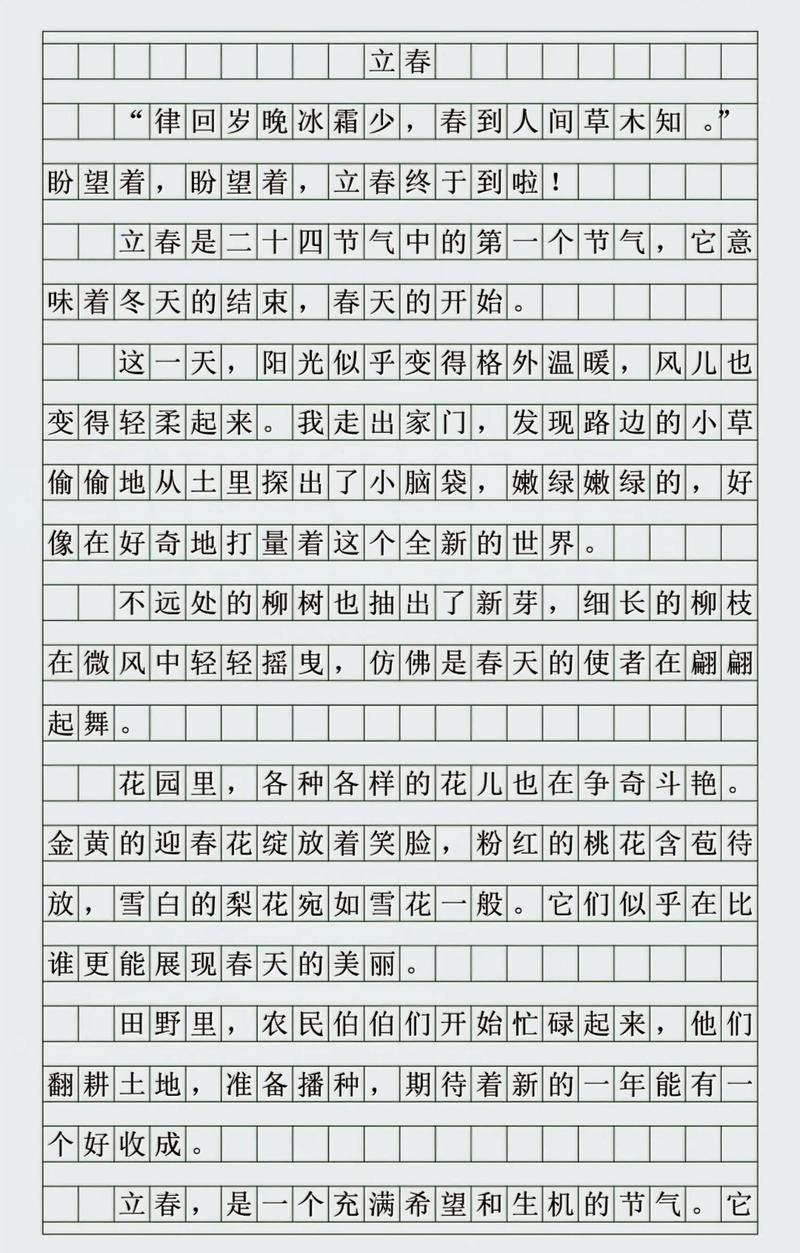 立春
“律回岁晚冰霜少，春到人间草木知。”
盼望着，盼望着，立春终于到啦！
立春是二十四节气中的第一个节气，它意
味着冬天的结束，春天的开始。
这一天，阳光似乎变得格外温暖，风儿也
变得轻柔起来。我走出家门，发现路边的小草
偷偷地从土里探出了小脑袋，嫩绿嫩绿的，好
像在好奇地打量着这个全新的世界。
不远处的柳树也抽出了新芽，细长的柳枝
在微风中轻轻摇曳，仿佛是春天的使者在翩翩
起舞。
花园里，各种各样的花儿也在争奇斗艳。
金黄的迎春花绽放着笑脸，粉红的桃花含苞待
放，雪白的梨花宛如雪花一般。它们似乎在比
谁更能展现春天的美丽。
田野里，农民伯伯们开始忙碌起来，他们
翻耕土地，准备播种，期待着新的一年能有一
个好收成。
立春，是一个充满希望和生机的节气。它